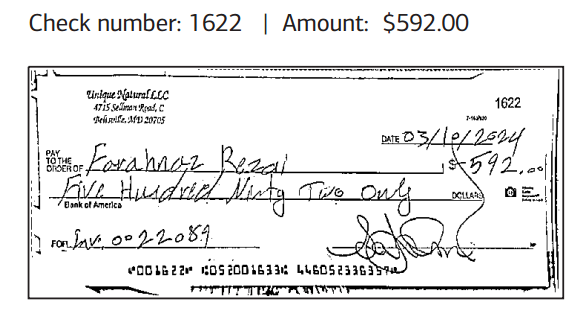 Check number: 1622 | Amount: $592.00
Unique Natural LLC
4715 Sellman Road, C
Beltsville, MD 20705
1622
DATE 03/10/2024
PAY TO THE ORDER OF Farahnaz Rezai $592.00
Five Hundred Ninty Two Only DOLLARS
Bank of America
FOR Inv. 0022089